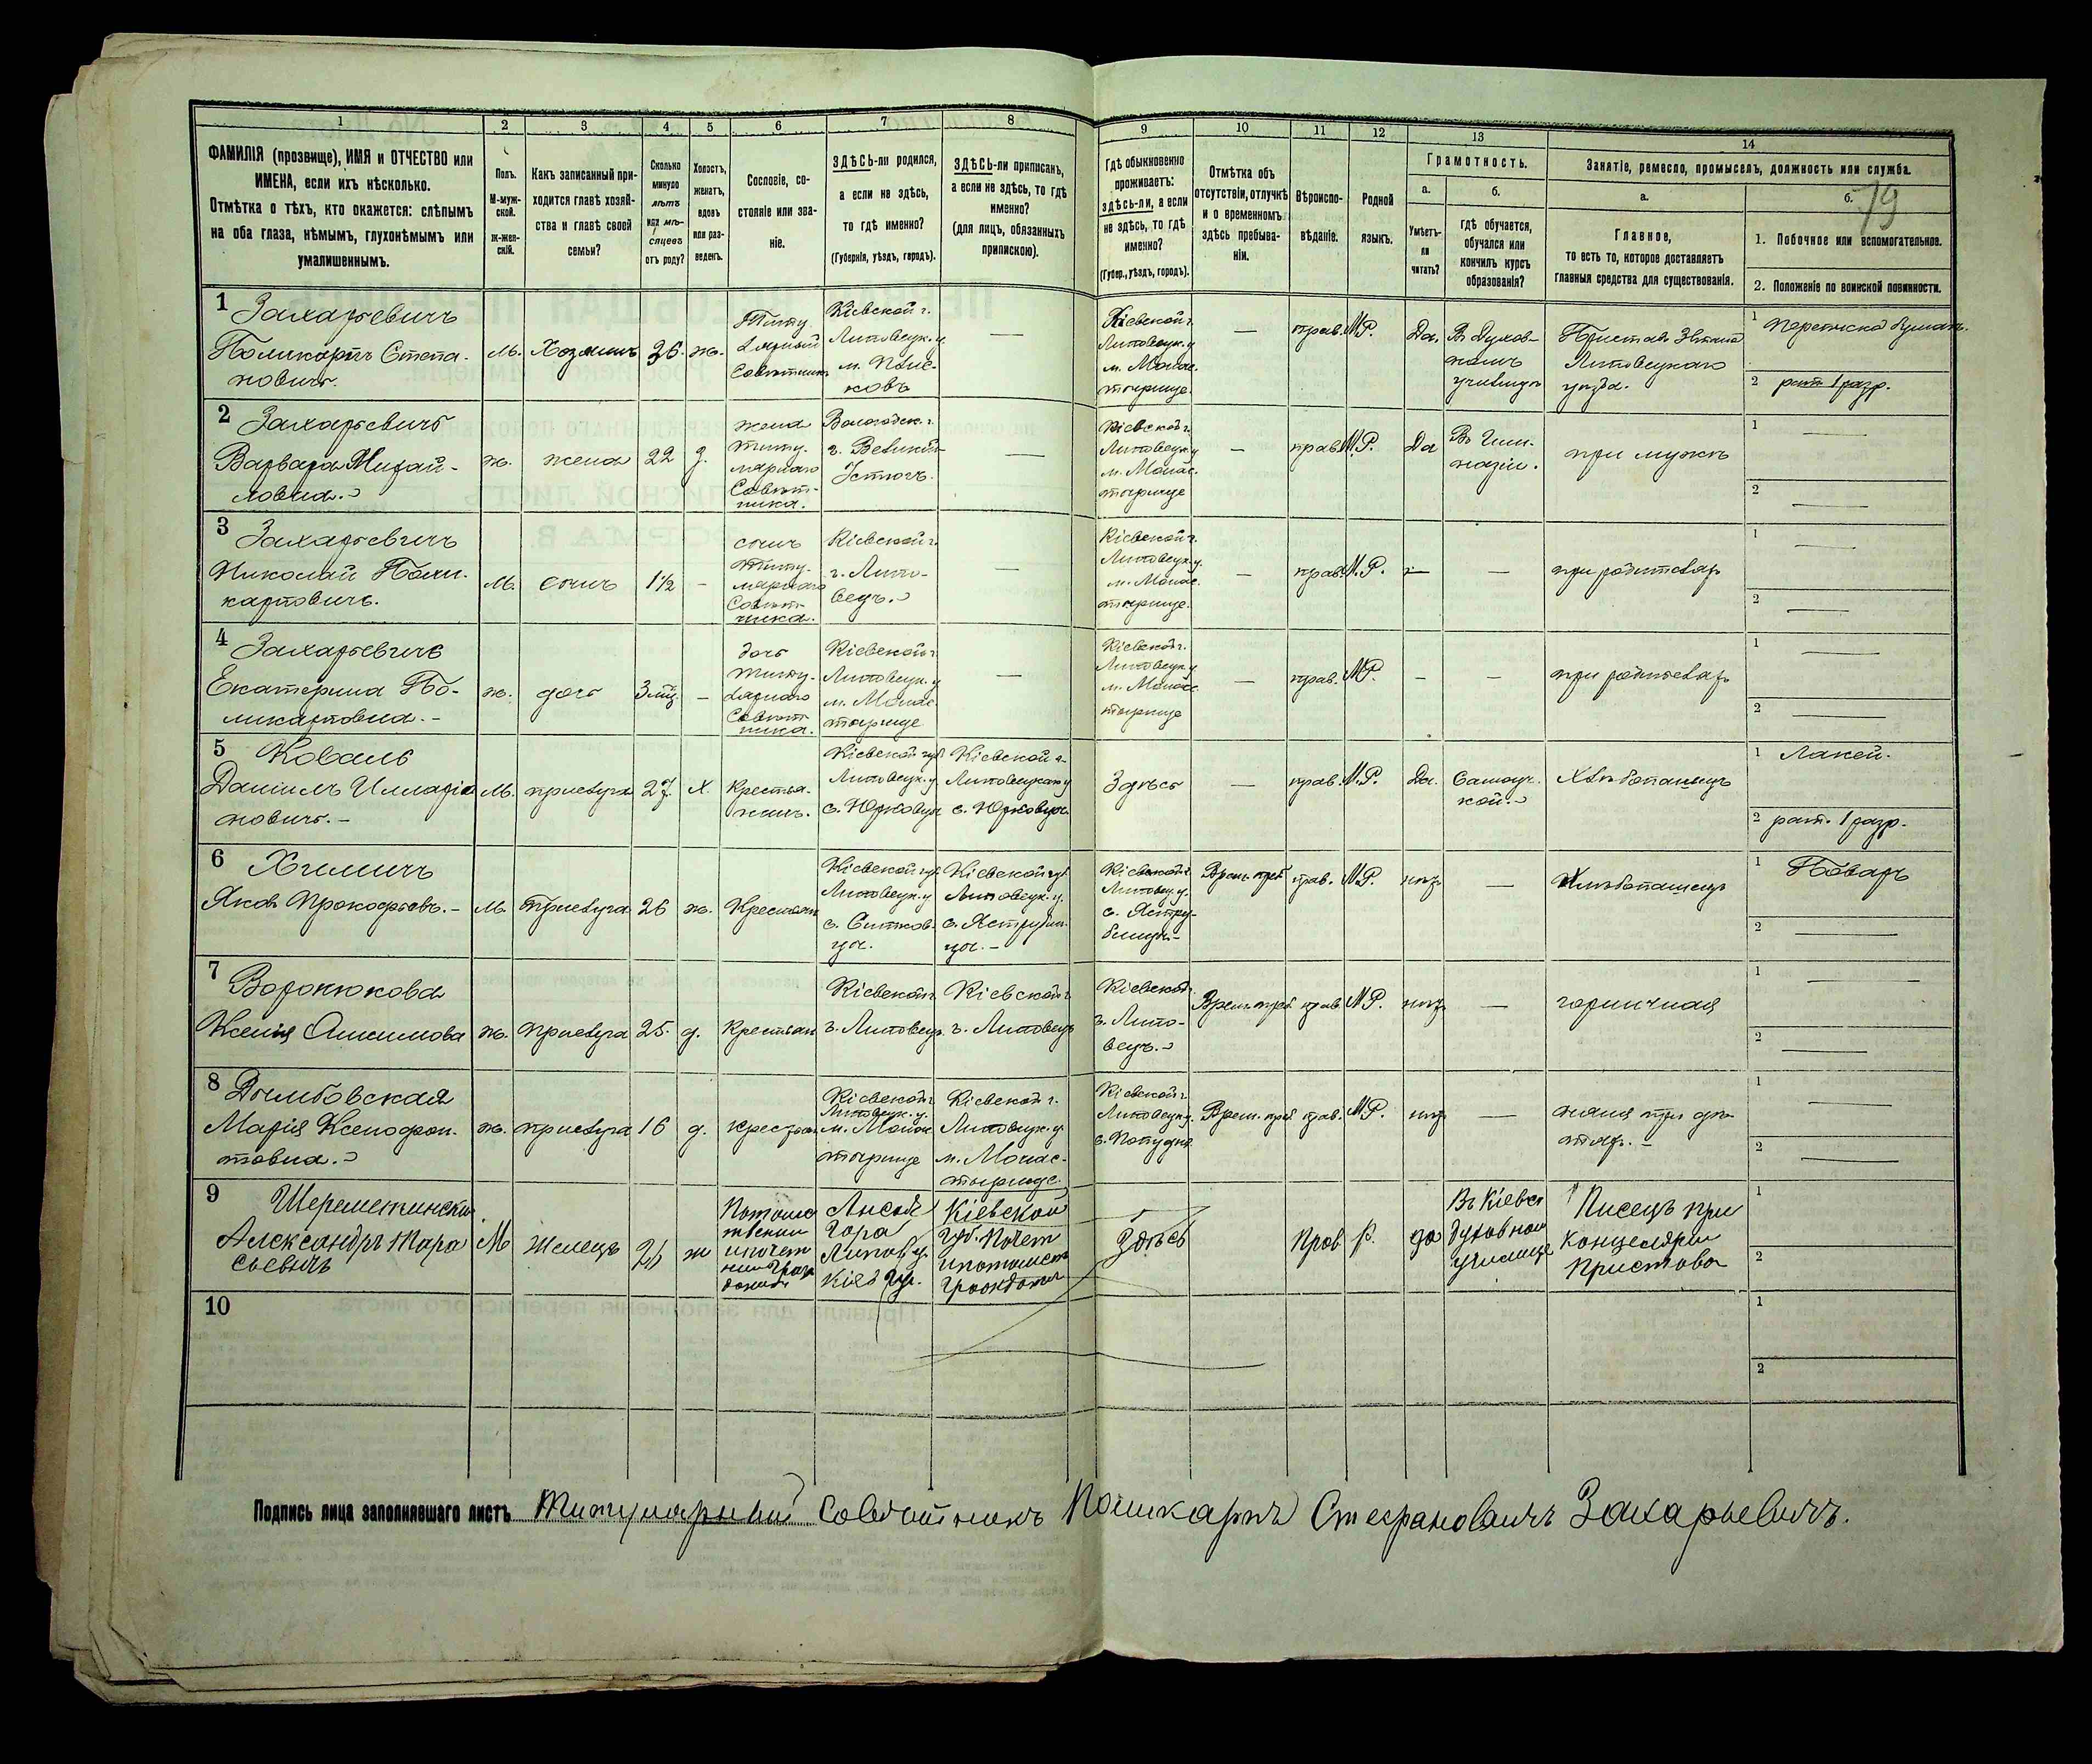 1 2 3 4 5 6 7 8 9 10 11 12 13 14
ФАМИЛІЯ (прозвище), ИМЯ и ОТЧЕСТВО или
ИМЕНА, если ихъ нѣсколько.
Отмѣтка о тѣхъ, кто окажется: слѣпымъ
на оба глаза, нѣмымъ, глухонѣмымъ или
умалишеннымъ.
Полъ.
М-муж-
ской.
Ж-жен-
скій.
Какъ записанный при-
ходится главѣ хозяй-
ства и главѣ своей
семьи?
Сколько
минуло
лѣтъ
или мѣ-
сяцевъ
отъ роду?
Холостъ,
женатъ,
вдовъ
или раз-
веденъ.
Сословіе, со-
стояніе или зва-
ніе.
ЗДѢСЬ-ли родился,
а если не здѣсь,
то гдѣ именно?
(Губернія, уѣздъ, городъ).
ЗДѢСЬ-ли приписанъ,
а если не здѣсь, то гдѣ
именно?
(для лицъ, обязанныхъ
припискою).
Гдѣ обыкновенно
проживаетъ:
здѣсь-ли, а если
не здѣсь, то гдѣ
именно?
(Губер., уѣздъ, городъ).
Отмѣтка объ
отсутствіи, отлучкѣ
и о временномъ
здѣсь пребыва-
ніи.
Вѣроиспо-
вѣданіе.
Родной
языкъ.
Грамотность.
а.
Умѣетъ-
ли
читать?
б.
гдѣ обучается,
обучался или
кончилъ курсъ
образованія?
Занятіе, ремесло, промыселъ, должность или служба.
а.
Главное,
то есть то, которое доставляетъ
главныя средства для существованія.
б.
79
1. Побочное или вспомогательное.
2. Положеніе по воинской повинности.
1 Захарьевичъ
Поликарпъ Степа-
новичъ.
м.
Хозяинъ
36.
ж.
Титу
лярный
Совѣтникъ
Кіевской г.
Липовецк. у.
м. Плис-
ковъ
—
Кіевской г.
Липовецк. у
м. Монас-
тырище.
—
прав.
М.Р.
Да.
Въ Духов-
номъ
училищѣ
Приставъ 3го стана
Липовецкаго
уѣзда.
1 Переписка бумагъ.
2 рат. 1 разр.
2 Захарьевичъ
Варвара Михай-
ловна.
ж.
жена
22
з.
жена
титу-
лярнаго
Совѣт-
ника.
Вологодск. г.
г. Великій
Устюгъ.
—
Кіевской г.
Липовецк. у
м. Монас-
тырище
—
прав.
М.Р.
Да
Въ Гим-
назіи.
при мужѣ
1 —
2 —
3 Захарьевичъ
Николай Поли-
карповичъ.
м.
сынъ
1½
-
сынъ
титу-
лярнаго
Совѣт-
ника.
Кіевской г.
г. Липо-
вецъ.
—
Кіевской г.
Липовецк. у.
м. Монас-
тырище.
—
прав.
М.Р.
—
—
при родителяхъ
1 —
2 —
4 Захарьевичъ
Екатерина По-
ликарповна. -
ж.
дочь
3 мѣс.
-
дочь
титу-
лярнаго
Совѣт-
ника.
Кіевской г.
Липовецк. у
м. Монас-
тырище
—
Кіевской г.
Липовецк. у
м. Монас-
тырище
—
прав.
М.Р.
-
-
при родителяхъ
1 —
2 —
5 Коваль
Даніилъ Илларіо
новичъ. -
м.
прислуга
27.
х.
Крестья-
нинъ.
Кіевской губ
Липовецк. у
с. Юрковцы
Кіевской г.
Липовецкаго у
с. Юрковцы
Здѣсь
—
прав.
М.Р.
Да.
Самоуч-
кой.
Хлѣбопашецъ
1 Лакей.
2 рат. 1 разр.
6 Хмичъ
Яковъ Прокофьевъ. -
м.
Прислуга
26
ж.
Крестьян
Кіевской губ.
Липовецк. у
с. Ситков-
цы.
Кіевской губ
Липовецк. у.
с. Яструбин-
цы. -
Кіевской г.
Липовец. у.
с. Ястру-
бинцы-
Врем. преб
прав.
М.Р.
нѣтъ
—
Хлѣбопашецъ
1 Поваръ
2 —
7 Воронюкова
Ксенія Онисимова
ж.
Прислуга
25.
д.
Крестьян
Кіевской г.
г. Липовецъ
Кіевской г.
г. Липовецъ
Кіевской г.
г. Липо-
вецъ.
Врем. преб
прав
М.Р.
нѣтъ
—
горничная
1 —
2 —
8 Дымбовская
Марія Ксенофон-
товна.
ж.
прислуга
16
д.
Крестьян
Кіевской г.
Липовецк. у.
м. Монас
тырище
Кіевской г.
Липовецк. у
м. Монас-
тырище.
Кіевской г.
Липовецк. у.
с. Попудня
Врем. преб
прав.
М.Р.
нѣтъ
—
няня при дѣ-
тяхъ. -
1 —
2 —
9 Шереметинскій
Александръ Тара
сьевичъ
М
жилецъ
ж
Потомс
твенный
и почет
ный Граж
данинъ
Лысая
Гора
Липов у.
Кіев губ.
Кіевской
губ. Почет
и потомств
гражданинъ
Здѣсь
Прав
р.
да
Въ Кіевск
духовном
училище
Писецъ при
Концеляріи
Пристова
1
2
10
1
2
Подпись лица заполнявшаго листъ Титулярный Совѣтникъ Поликарпъ Стефановичъ Захарьевичъ.